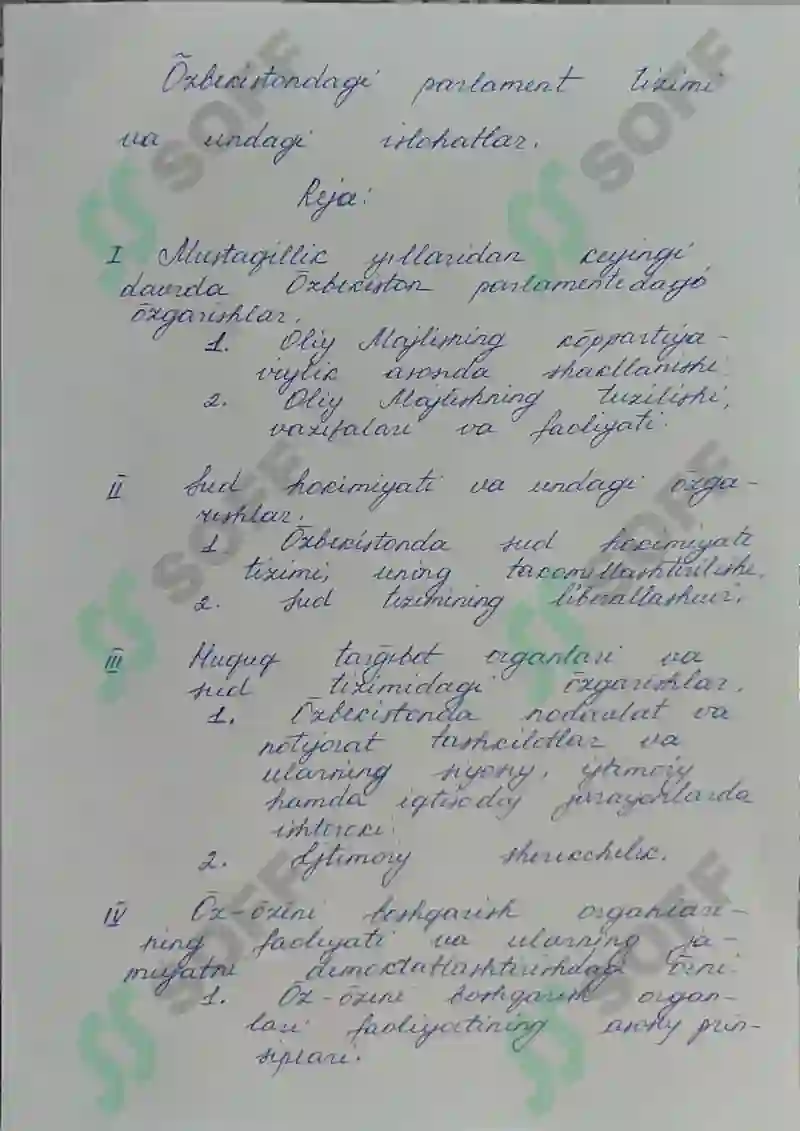 Õzbekistondagi parlament tizimi
va undagi islohatlar.
Reja:
I Mustaqillik yillaridan keyingi
davrda Õzbekiston parlamentidagi
õzgarishlar.
1. Oliy Majlisning kõppartiya-
viylik asosida shakllanishi.
2. Oliy Majlishning tuzilishi,
vazifalari va faoliyati.
II Sud hokimiyati va undagi õzga-
rishlar.
1. Õzbekistonda sud hokimiyati
tizimi, uning takomillashtirilishi.
2. Sud tizimining liberallashuvi.
III Huquq targ̃ibot organlari va
sud tizimidagi õzgarishlar.
1. Õzbekistonda nodavlat va
notijorat tashkilotlar va
ularning siyosiy, ijtimoiy
hamda iqtisodiy jarayonlarda
ishtiroki.
2. Ijtimoiy sherikchilik.
IV Õz-õzini boshqarish organlari-
ning faoliyati va ularning ja-
miyatni demoktatlashtirishdagi õrni.
1. Õz-õzini boshqarish organ-
lari faoliyatining asosiy prin-
siplari.
SOFF
SOFF
SOFF
SOFF
SOFF
SOFF